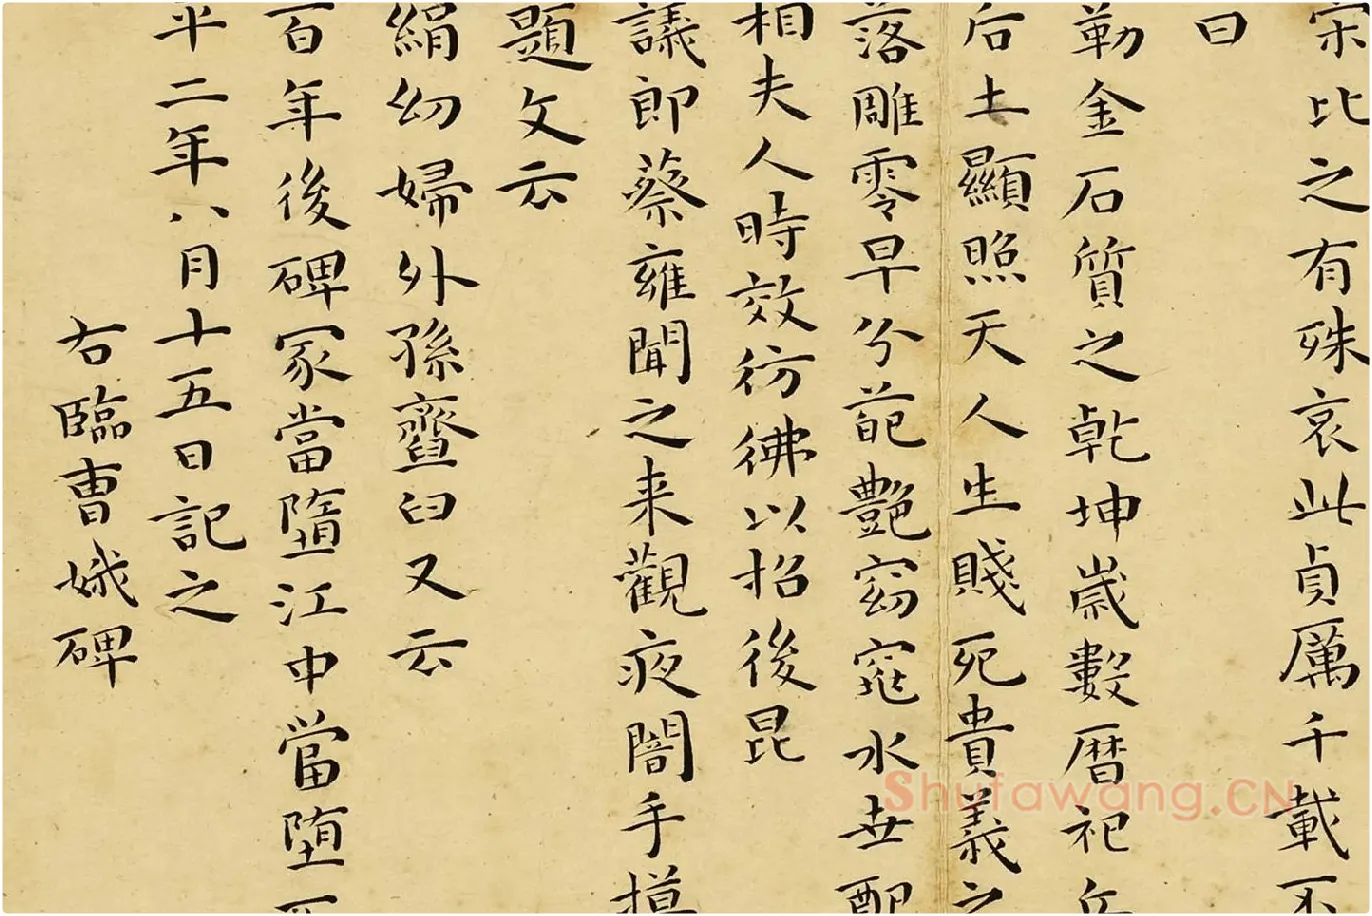 宋比之有殊哀此貞厲千載不
曰
勒金石質之乾坤嵗數暦祀丘
后土顯照天人生賤死貴義之
落雕零早分葩艷窈窕水世配
相夫人時效彷彿以招後昆
議郎蔡雍聞之来觀夜闇手摸
題文云
絹幼婦外孫齏臼又云
百年後碑冢當墮江中當堕不
平二年八月十五日記之
右臨曹娥碑
Shufawang.CN